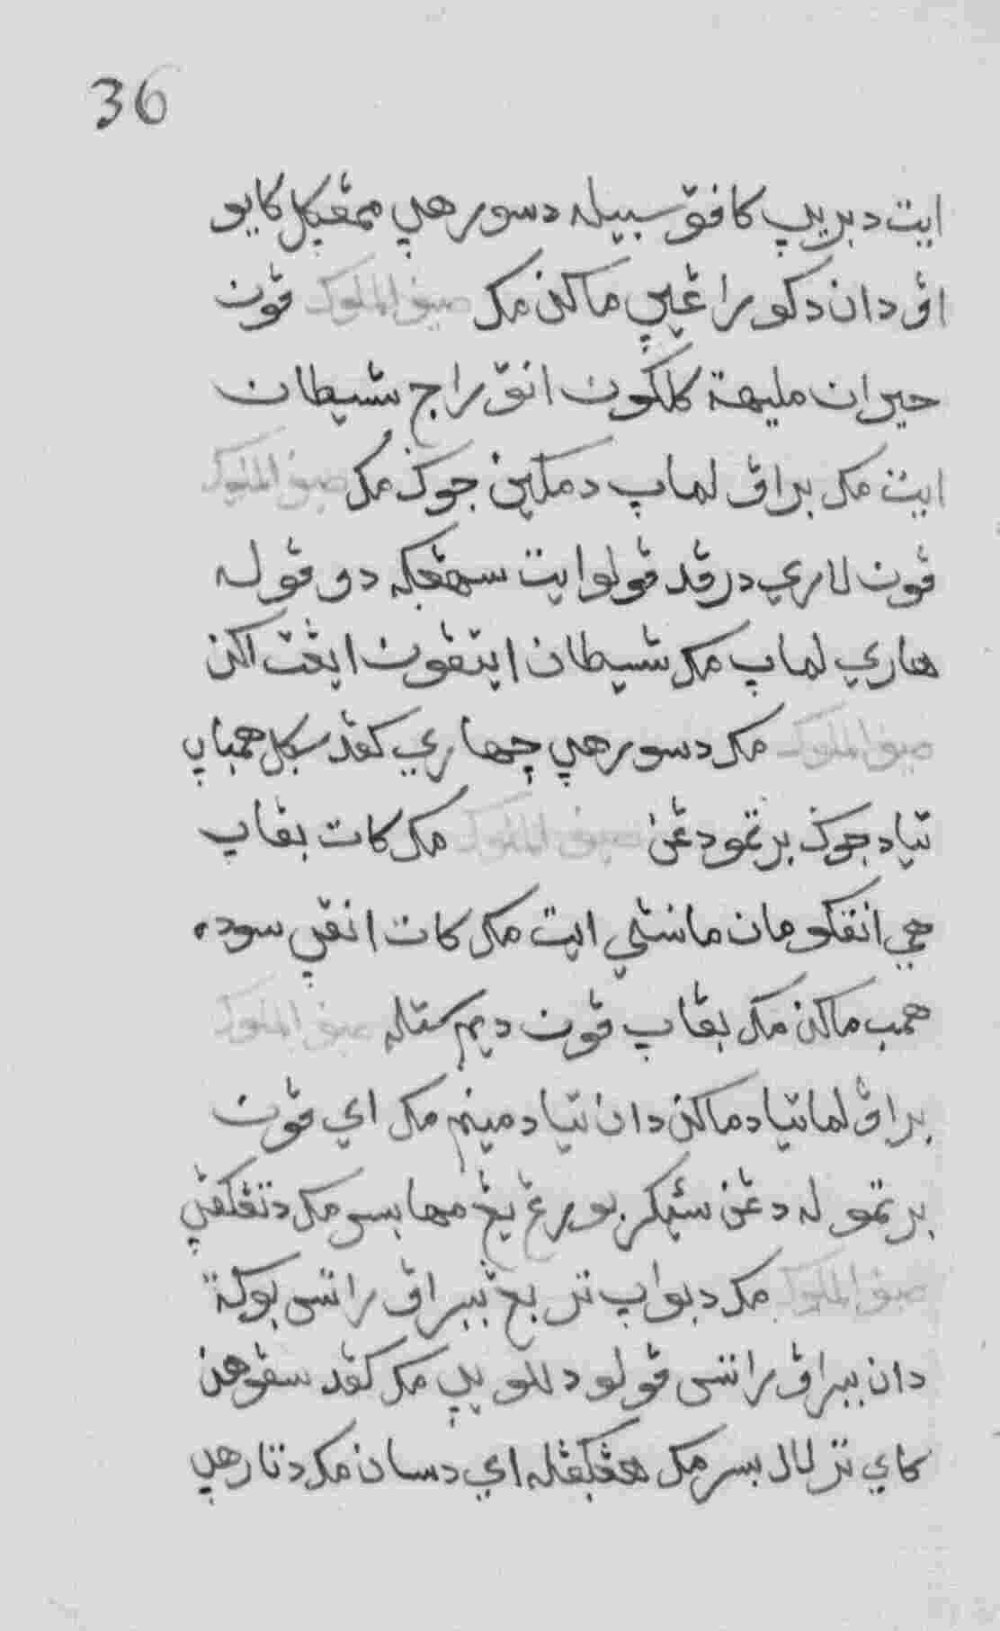 36
ايت دبريڽ كافڠ سبيله دسورهڽ ممڤيكل كايو
اڤ دان دكوراڠيڽ ماكن مك صيف الملوك ڤون
حيران مليهة كلكون انق راج شيطان
ايت مك براڤ لماڽ دمكين جوك مك صيف الملوك
ڤون لاري درڤد ڤولو ايت سهڠك دو ڤوله
هاري لماڽ مك شيطان ايتڤون ايڠت اكن
صيف الملوك مك دسورهڽ چهاري كڤد سكل همباڽ
تياد جوك برتمو دڠن صيف الملوك مك كات بڤاڽ
هي انقكو مان مانسي ايت مك كات انقڽ سوده
همب ماكن مك بڤاڽ ڤون ديم سته صيف الملوك
براڤ لما تياد ماكن دان تياد مينم مك اي ڤون
برتموله دڠن سئيكر بورڠ يڠ مها بسر مك دتڠكڤڽ
صيف الملوك مك دبواڽ تربڠ ببراڤ راتس بوكة
دان ببراڤ راتس ڤولو دللويڽ مك كڤد سڤوهن
كاي ترلالو بسر مك هڠكڤله اي دسان مك دتارهڽ